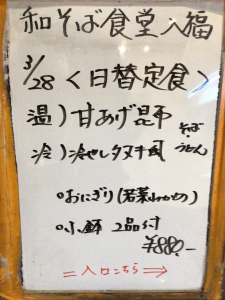 和そば食堂 入福
3/28 <日替定食>
温) 甘あげ昆布
冷) 冷やしタヌキ風
そば・うどん
○おにぎり(若菜わかめ)
○小鉢 2品付
¥880.-
=入口こちら⇒